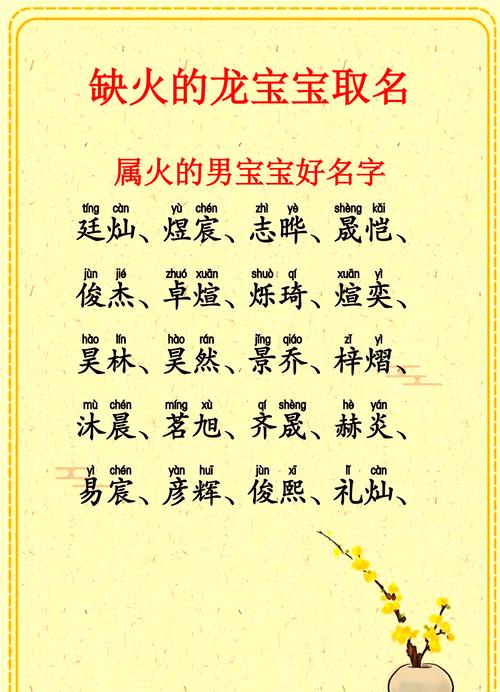 缺火的龙宝宝取名
属火的男宝宝好名字
tíng càn yù chén zhì yè shèng kǎi
廷灿、煜宸、志晔、晟恺、
jùn jié zhuó xuān shuò qí xuān yì
俊杰、卓煊、烁琦、煊奕、
hào lín hào rán jǐng qiáo zǐ yì
昊林、昊然、景乔、梓熠、
mù chén míng xù qí shèng hè yán
沐晨、茗旭、齐晟、赫炎、
yì chén yàn huī jùn xī lǐ càn
易宸、彦辉、俊熙、礼灿、